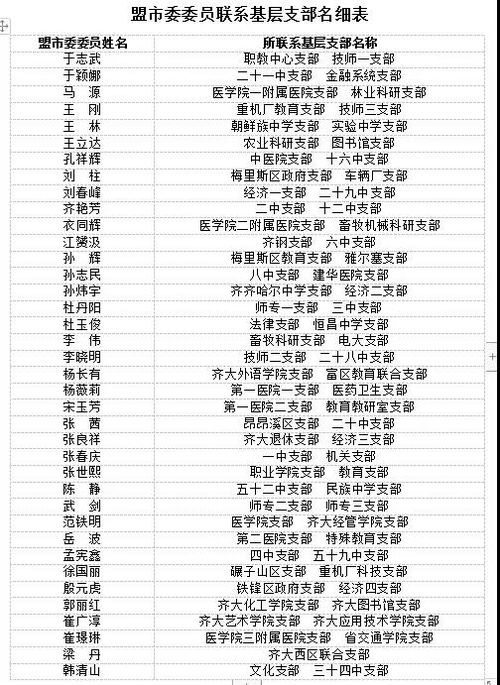 盟市委委员联系基层支部名细表
盟市委委员姓名 所联系基层支部名称
于志武 职教中心支部 技师一支部
于颖娜 二十一中支部 金融系统支部
马 源 医学院一附属医院支部 林业科研支部
王 刚 重机厂教育支部 技师三支部
王 林 朝鲜族中学支部 实验中学支部
王立达 农业科研支部 图书馆支部
孔祥辉 中医院支部 十六中支部
刘 柱 梅里斯区政府支部 车辆厂支部
刘春峰 经济一支部 二十九中支部
齐艳芳 二中支部 十二中支部
衣同辉 医学院二附属医院支部 畜牧机械科研支部
江赟汲 齐钢支部 六中支部
孙 辉 梅里斯区教育支部 雅尔塞支部
孙志民 八中支部 建华医院支部
孙炜宇 齐齐哈尔中学支部 经济二支部
杜丹阳 师专一支部 三中支部
杜玉俊 法律支部 恒昌中学支部
李 伟 畜牧科研支部 电大支部
李晓明 技师二支部 二十八中支部
杨长有 齐大外语学院支部 富区教育联合支部
杨薇莉 第一医院一支部 医药卫生支部
宋玉芳 第一医院二支部 教育教研室支部
张 茜 昂昂溪区支部 二十中支部
张良祥 齐大退休支部 经济三支部
张春庆 一中支部 机关支部
张世熙 职业学院支部 教育支部
陈 静 五十二中支部 民族中学支部
武 剑 师专二支部 师专三支部
范铁明 医学院支部 齐大经管学院支部
岳 波 第二医院支部 特殊教育支部
孟宪鑫 四中支部 五十九中支部
徐国丽 碾子山区支部 重机厂科技支部
殷元虎 铁锋区政府支部 经济四支部
郭丽红 齐大化工学院支部 齐大图书馆支部
崔广淳 齐大艺术学院支部 齐大应用技术学院支部
崔璟琳 医学院三附属医院支部 省交通学院支部
梁 丹 齐大西区联合支部
韩清山 文化支部 三十四中支部